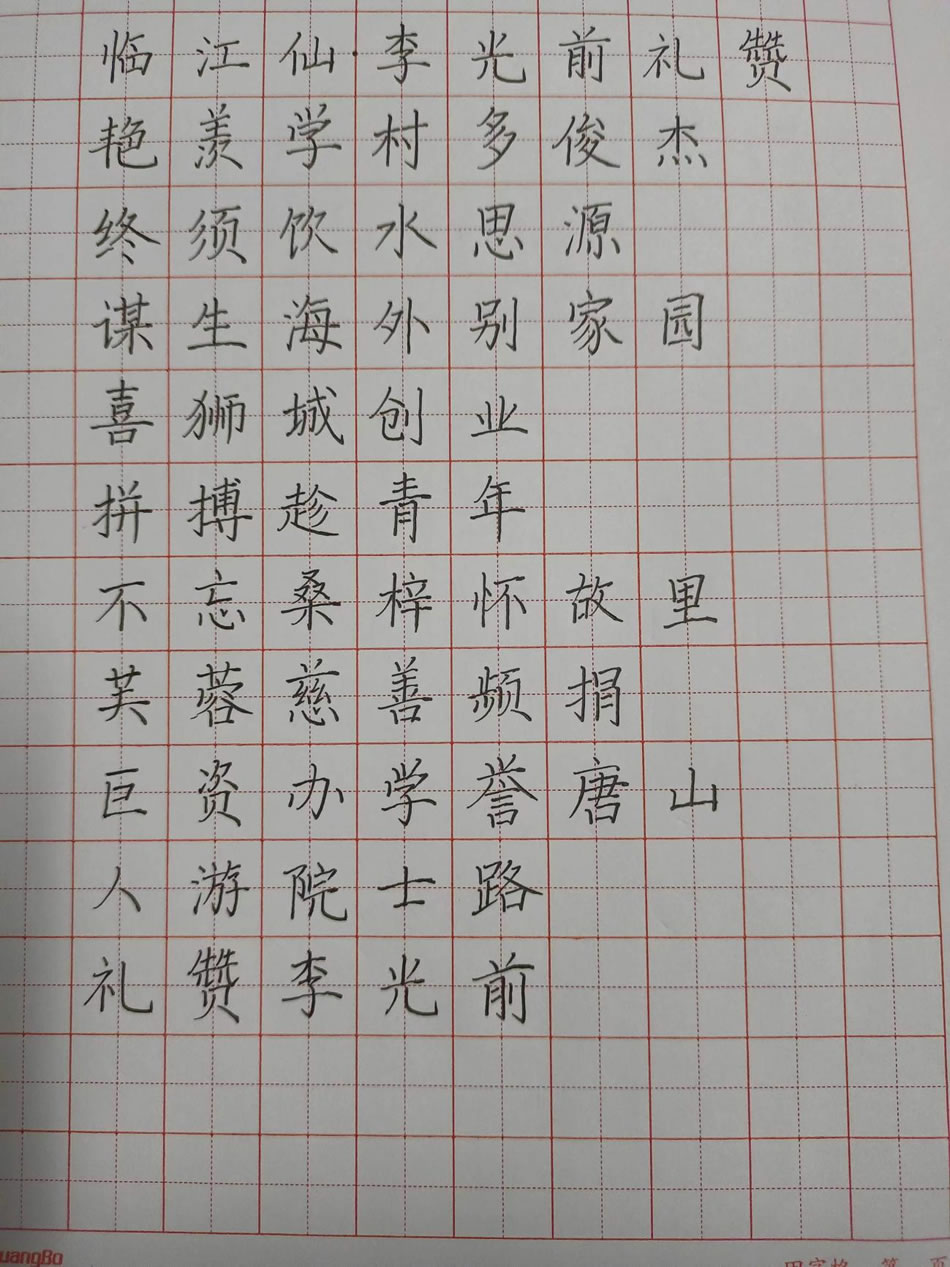 临江仙·李光前礼赞
艳羡学村多俊杰
终须饮水思源
谋生海外别家园
喜狮城创业
拼搏趁青年
不忘桑梓怀故里
芙蓉慈善频捐
巨资办学誉唐山
人游院士路
礼赞李光前
uangBo